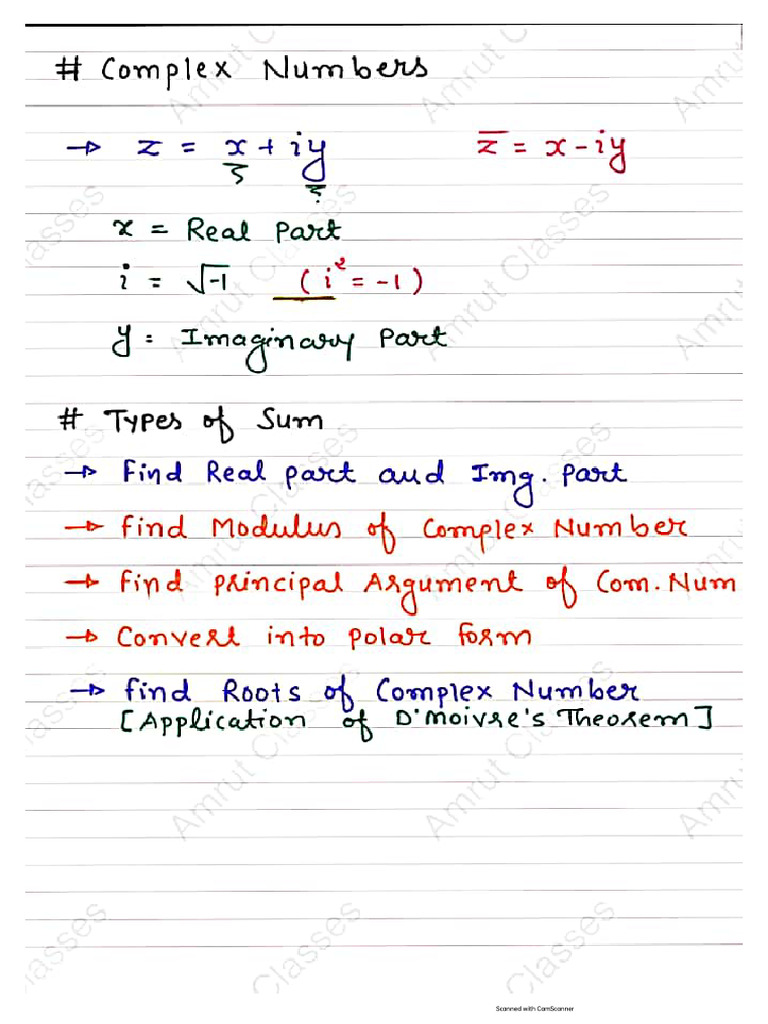 # Complex Numbers
→ z = x + iy z̅ = x - iy
x = Real Part
i = √-1 (i² = -1)
y = Imaginary Part
# Types of Sum
→ Find Real part and Img. Part
→ Find Modulus of Complex Number
→ Find principal Argument of Com. Num
→ Convert into polar form
→ find Roots of Complex Number
[Application of D'moivre's Theorem]
Amrut Classes
Scanned with CamScanner